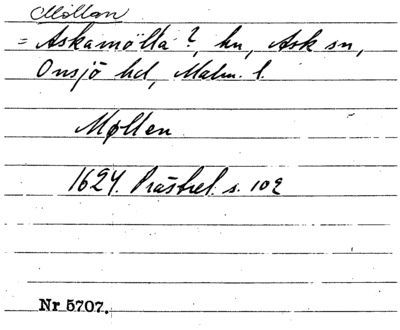 Møllan
= Askamölla?, hn, Ask sn,
Onsjö hd, Malm. l.
Møllen
1624. Prästrel. s. 102
Nr 5707.